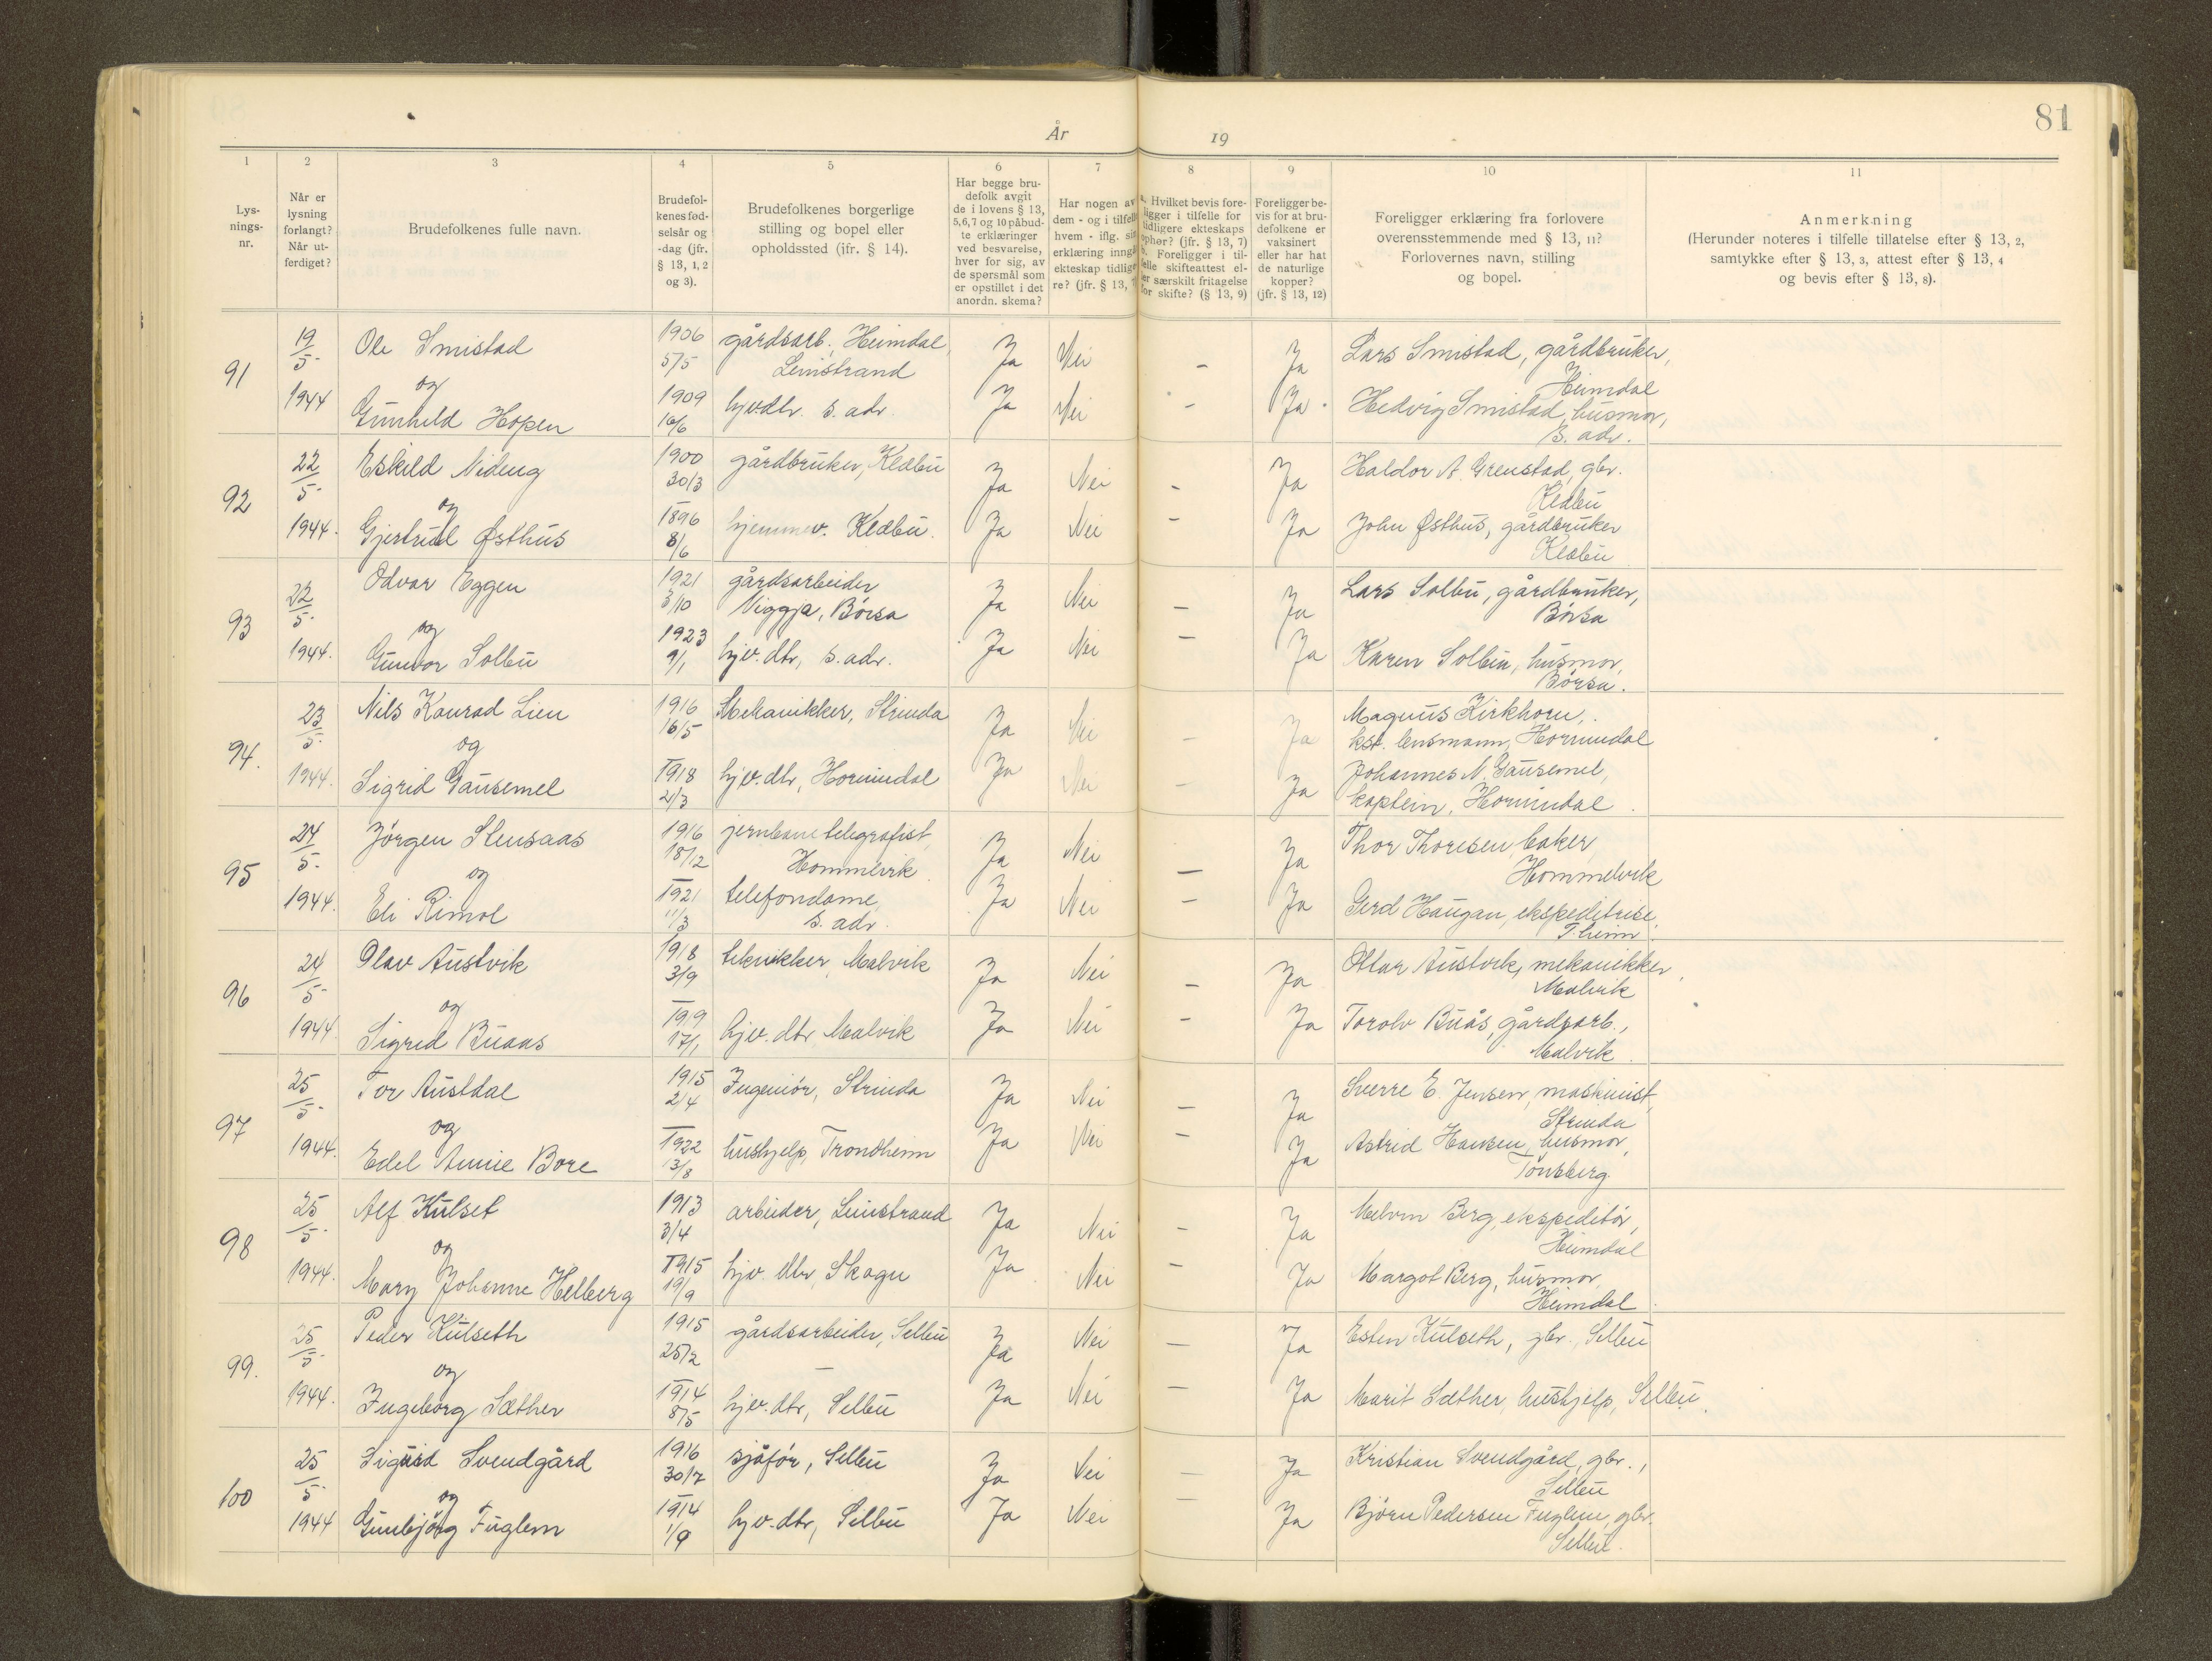 81
År 19
1 2 3 4 5 6 7 8 9 10 11
Lys-
nings-
nr.
Når er
lysning
forlangt?
Når ut-
ferdiget?
Brudefolkenes fulle navn.
Brudefol-
kenes fød-
selsår og
-dag (jfr.
§ 13, 1, 2
og 3).
Brudefolkenes borgerlige
stilling og bopel eller
opholdssted (jfr. § 14).
Har begge bru-
defolk avgit
de i lovens § 13,
5,6,7 og 10 påbud-
te erklæringer
ved besvarelse,
hver for sig, av
de spørsmål som
er opstillet i det
anordn. skema?
Har nogen av
dem - og i tilfelle
hvem - iflg. sin
erklæring inngå
ekteskap tidlige-
re? (jfr. § 13, 7
a. Hvilket bevis fore-
ligger i tilfelle for
tidligere ekteskaps
ophør? (jfr. § 13, 7)
b. Foreligger i til-
felle skifteattest el-
er særskilt fritagelse
for skifte? (§ 13, 9)
Foreligger be-
vis for at bru-
defolkene er
vaksinert
eller har hat
de naturlige
kopper?
(jfr. § 13, 12)
Foreligger erklæring fra forlovere
overensstemmende med § 13, 11?
Forlovernes navn, stilling
og bopel.
Anmerkning
(Herunder noteres i tilfelle tillatelse efter § 13, 2,
samtykke efter § 13, 3, attest efter § 13, 4
og bevis efter § 13, 8).
91 19/5- Ole Smistad 1906 5/5 gårdsarb. Heimdal, Ja Nei - Ja Lars Smistad, gårdbruker,
Leinstrand Heimdal
og
1944 Gunhild Hopen 1909 16/6 hjv.dtr. s. adr. Ja Nei - Ja. Hedvig Smistad, husmor,
s. adr.
92 22/5- Eskild Nideng 1900 30/3 gårdbruker, Klæbu Ja Nei - Ja Haldor A. Grenstad, gbr.
Klæbu
og
1944. Gjertrud Østhus 1896 8/6 hjemmev. Klæbu. Ja Nei - Ja John Østhus, gårdbruker
Klæbu
93 22/5- Odvar Eggen 1921 3/10 gårdsarbeider Ja Nei - Ja Lars Solbu, gårdbruker,
Viggja, Börsa Börsa
og
1944. Gunvor Solbu 1923 9/1 hjv. dtr, s. adr. Ja Nei - Ja Karen Solbu, husmor,
Börsa.
94. 23/5- Nils Konrad Lien 1916 16/5 Mekanikker, Strinda Ja Nei - Ja Magnus Kirkhorn,
kst. lensmann, Hornindal
og
1944. Sigrid Gausemel 1918 2/3 hjv. dtr, Hornindal Ja Nei - Ja Johannes N. Gausemel,
kaptein, Hornindal.
95 24/5- Jörgen Stensaas 1916 18/12 jernbanetelegrafist, Ja Nei - Ja Thor Thoresen, baker,
Hommelvik Hommelvik
og
1944. Eli Rimol 1921 11/3 telefondame, Ja Nei - Ja Gerd Haugan, ekspeditrise,
s. adr. T.heim.
96 24/5- Olav Austvik 1918 3/9 tekniker, Malvik Ja Nei - Ja Ottar Austvik, mekanikker,
Malvik
og
1944 Sigrid Buaas 1919 17/1 hjv. dtr Malvik Ja Nei - Ja Torolv Buås, gårdsarb.,
Malvik.
97 25/5- Tor Austdal 1915 2/4 Ingeniör, Strinda Ja Nei - Ja Sverre E. Jensen, maskinist,
Strinda
og
1944. Edel Annie Bore 1922 13/8 hushjelp, Trondheim Ja Nei - Ja Astrid Hansen, husmor,
Tönsberg.
98 25/5- Alf Kulset 1913 3/4 arbeider, Leinstrand Ja Nei - Ja Melvin Berg, ekspeditör,
Heimdal
og
1944. Mary Johanne Helberg 1915 19/9 hjv. dtr Skogn Ja Nei - Ja Margot Berg, husmor,
Heimdal.
99. 25/5- Peder Kulseth 1915 25/2 gårdsarbeider, Selbu Ja Nei - Ja Esten Kulseth, gbr., Selbu
og
1944. Ingeborg Sæther 1914 8/5 hjv. dtr, Selbu Ja Nei - Ja Marit Sæther, hushjelp, Selbu.
100 25/5- Sigurd Svendgård 1916 30/7 sjåför, Selbu Ja Nei - Ja Kristian Svendgård, gbr.,
Selbu
og
1944 Gunbjörg Fuglem 1914 1/9 hjv. dtr, Selbu Ja Nei - Ja Björn Pedersen Fuglem, gbr.
Selbu.